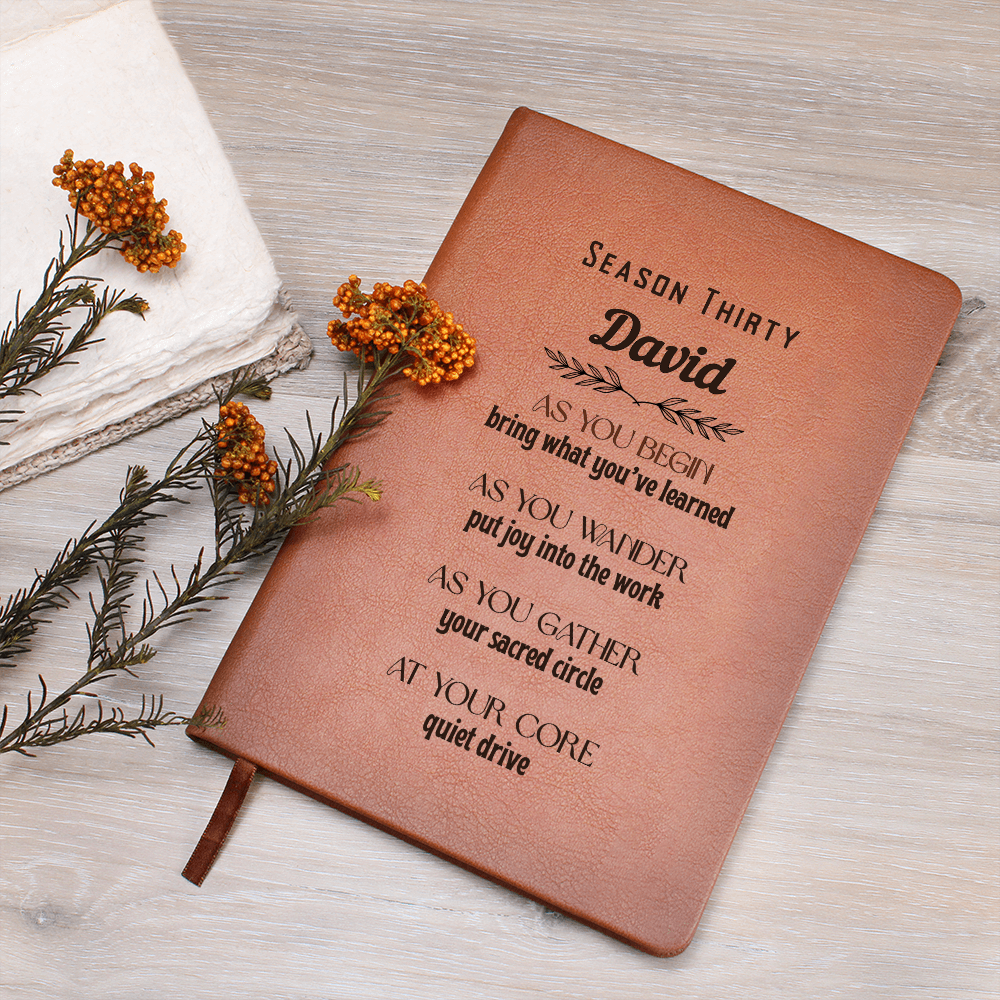 Season Thirty
David
AS YOU BEGIN
bring what you've learned
AS YOU WANDER
put joy into the work
AS YOU GATHER
your sacred circle
AT YOUR CORE
quiet drive